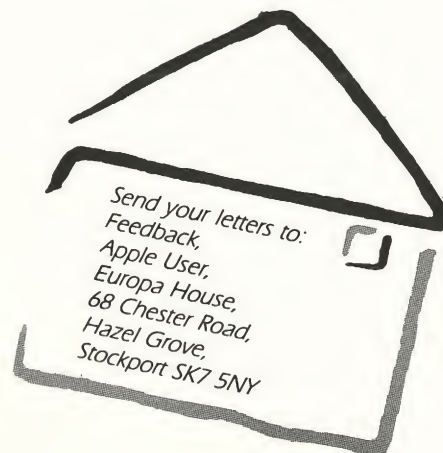 Send your letters to:
Feedback,
Apple User,
Europa House,
68 Chester Road,
Hazel Grove,
Stockport SK7 5NY